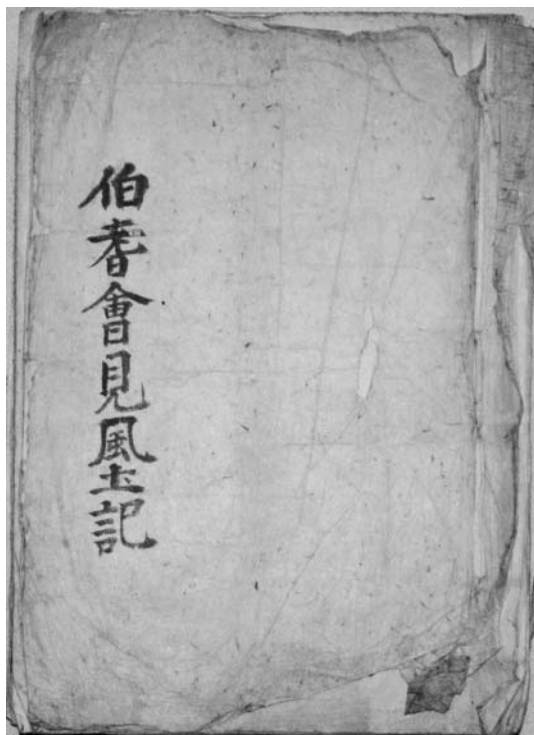 伯耆會見風土記